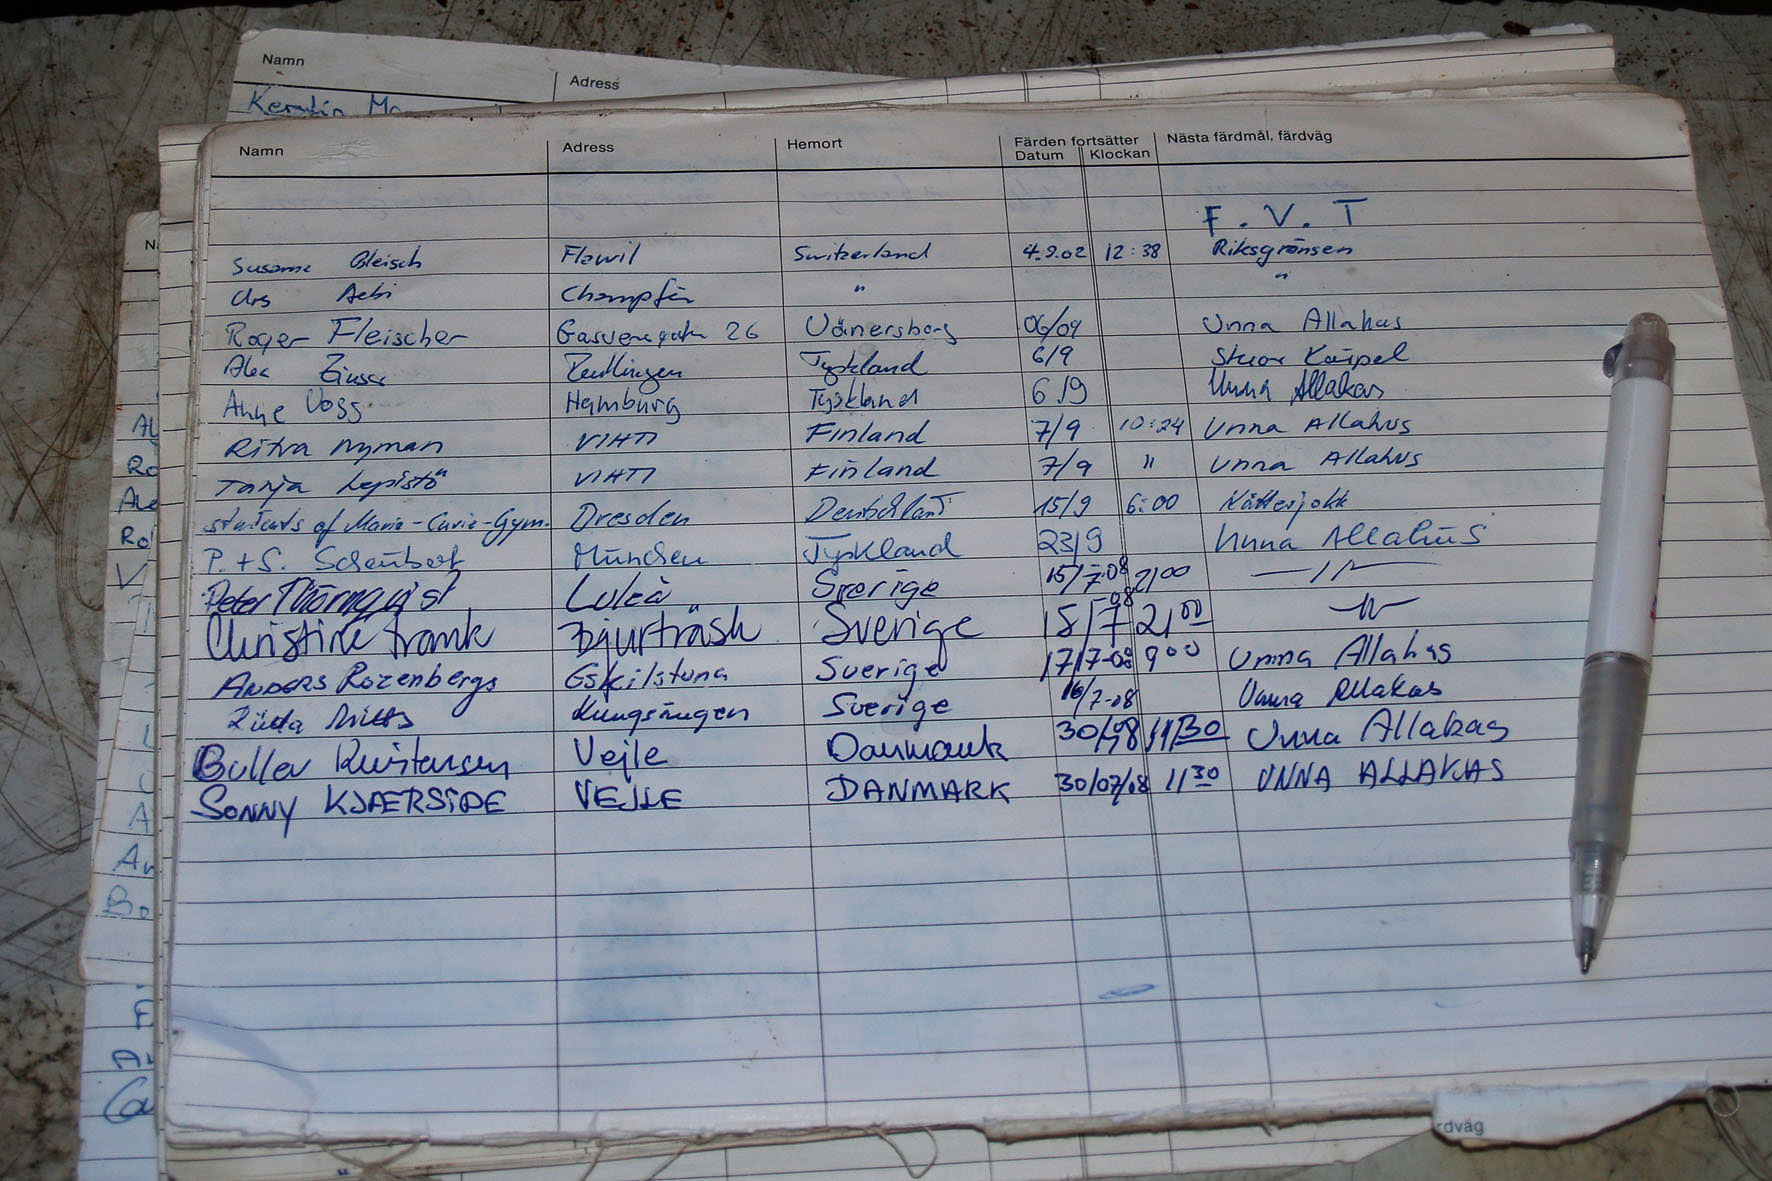 Namn Adress
Kerstin
Namn Adress Hemort Färden fortsätter Nästa färdmål, färdväg
Datum Klockan
F. V. T
Susanne Gleisch Flawil Switzerland 4.9.02 12:38 Riksgränsen
Urs Aebi Champfèr " "
Roger Fleischer 26 Vänersborg 06/09 Unna Allakas
Alex Reutlingen Tyskland 6/9 Stuor Kärpel
Anne Voss Hamburg Tyskland 6/9 Unna Allakas
Ritva Nyman VIHTI Finland 7/9 10:24 Unna Allakas
Tanja Lepistö VIHTI Finland 7/9 " Unna Allakas
students of Marie-Curie-Gym. Dresden Deutschland 15/9 6:00 Kåtterjokk
P. + S. Scheubert München Tyskland 23/9 Unna Allakas
Peter Thörnqvist Luleå Sverige 15/7-08 2100 —11—
Christine Frank Djurträsk Sverige 15/7-08 21 00 —11—
Anders Rozenbergs Eskilstuna Sverige 17/7-08 9 00 Unna Allakas
Kungsängen Sverige 16/7-08 Unna Allakas
Kristensen Vejle Danmark 11/30 Unna Allakas
SONNY KJAERSIDE VEJLE DANMARK 30/07/08 11 30 UNNA ALLAKAS
rdväg